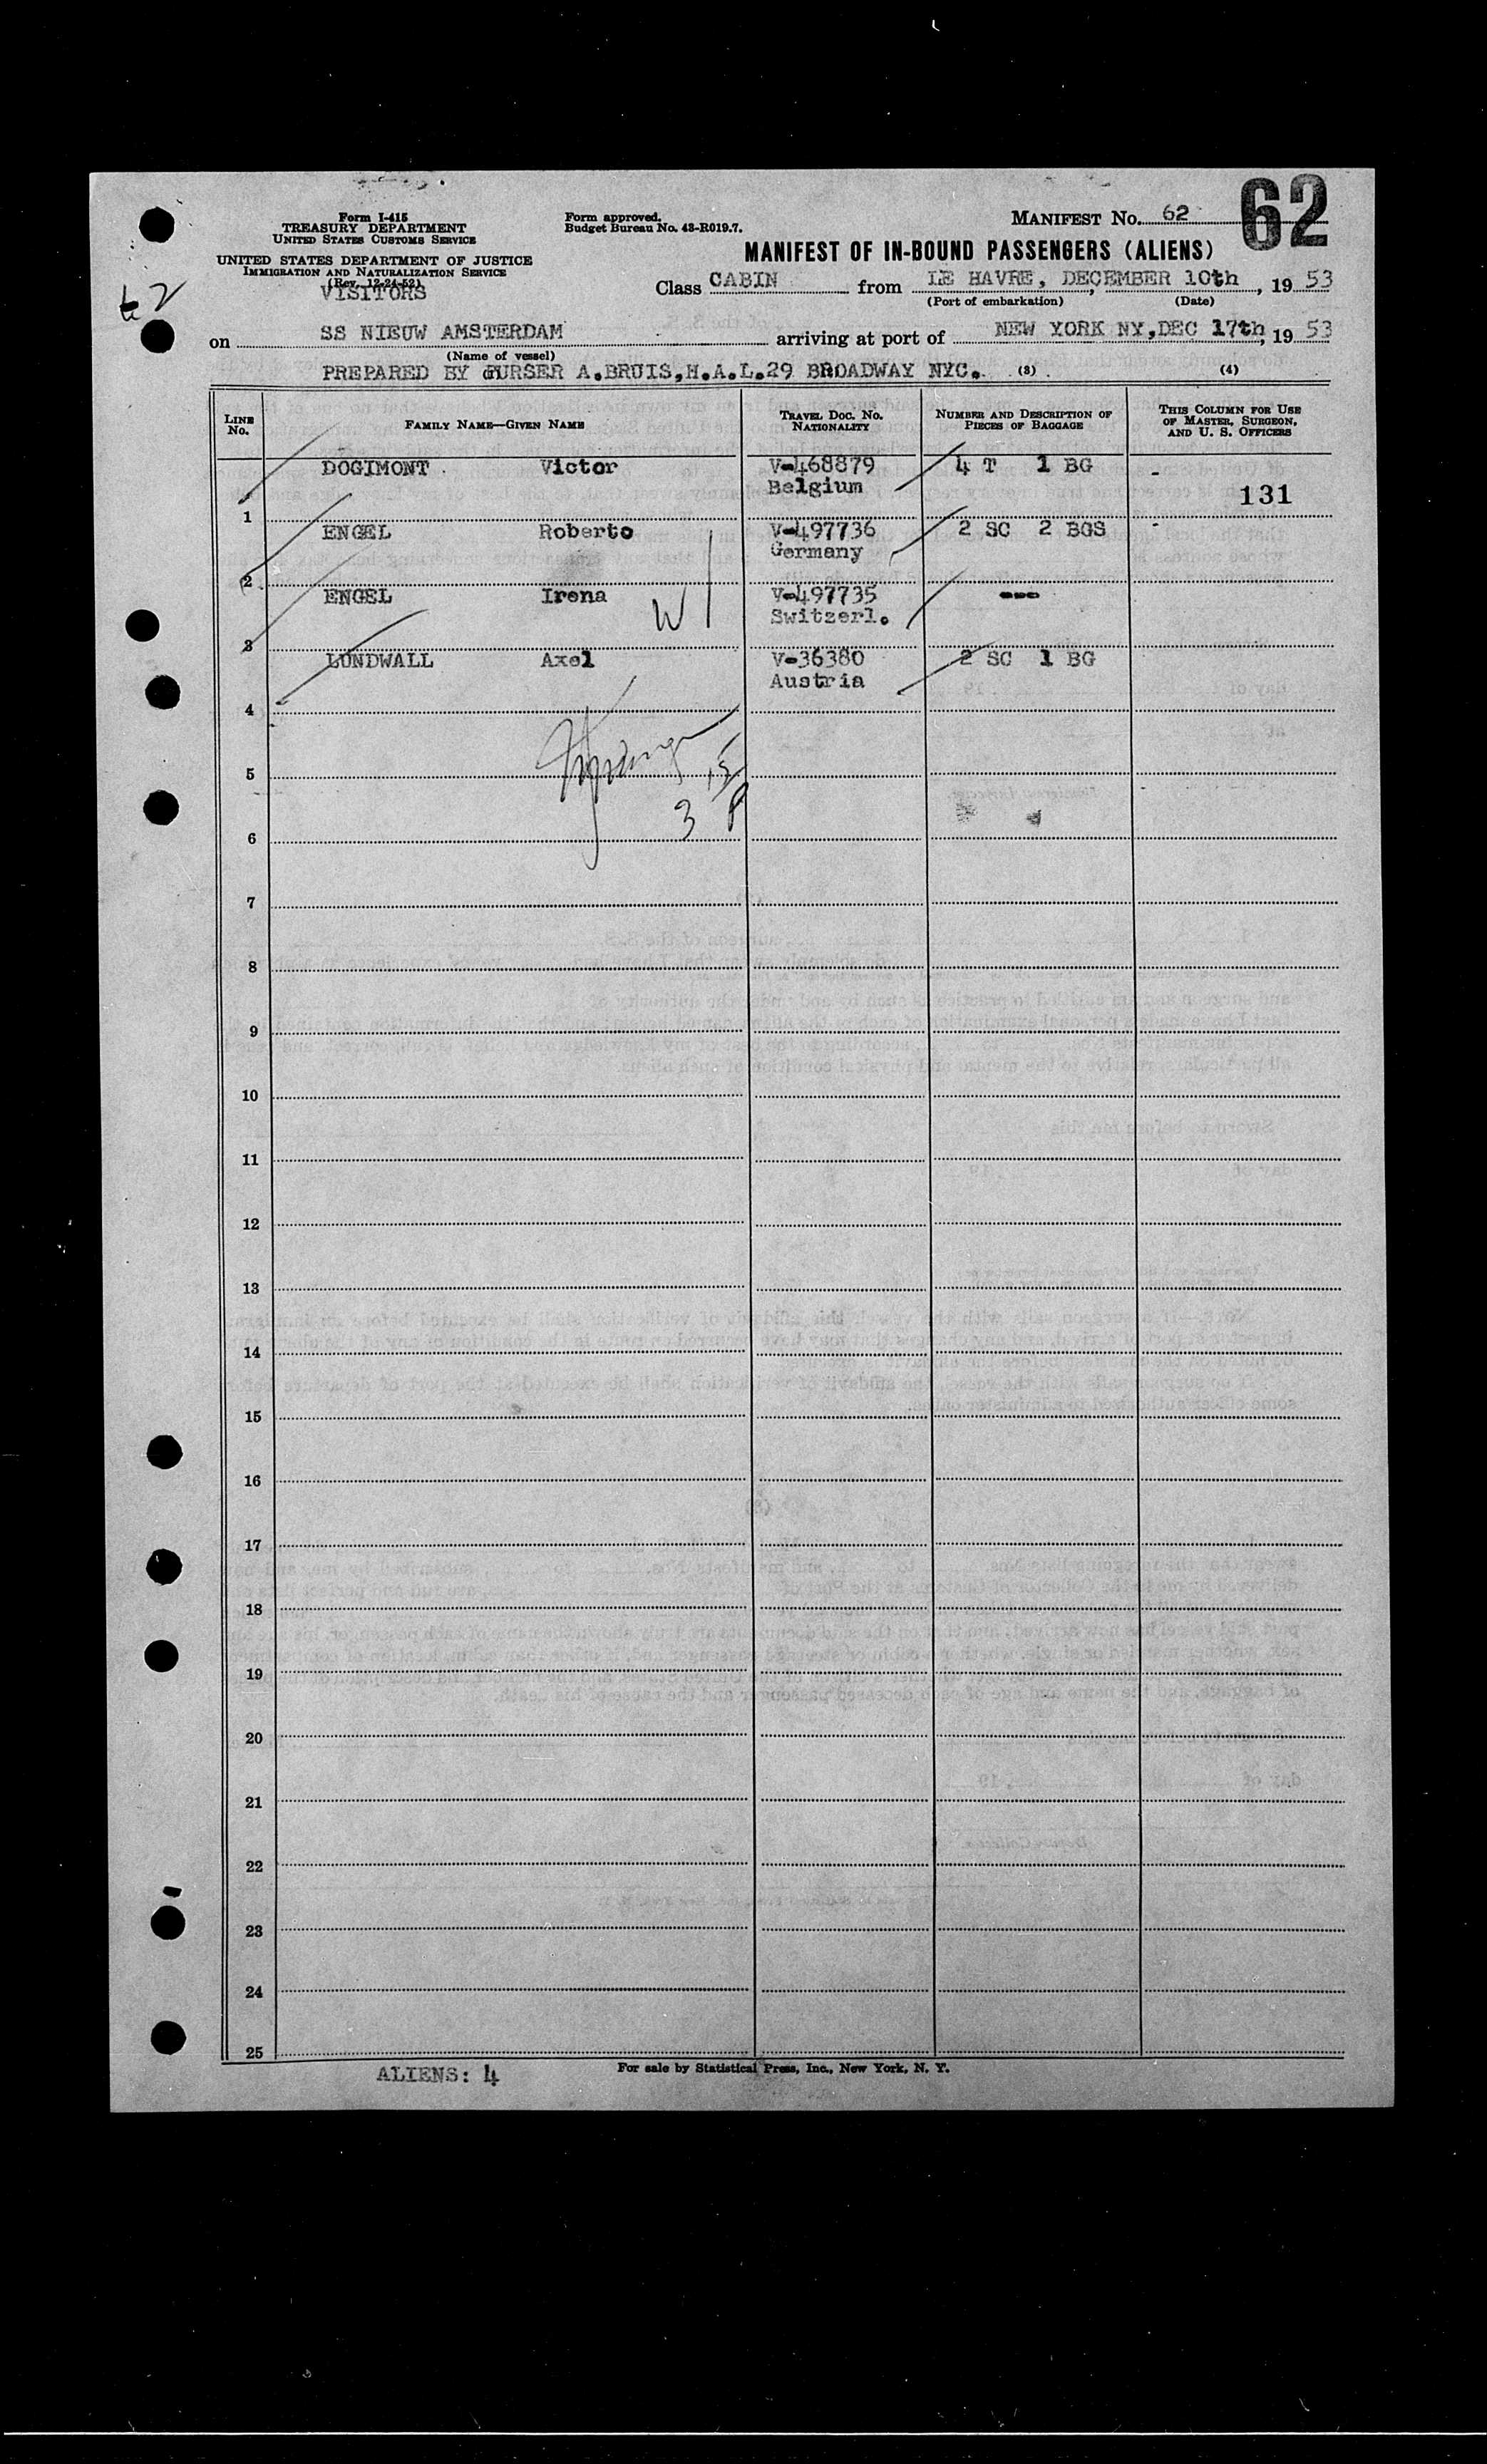 62
Form I-415
TREASURY DEPARTMENT
UNITED STATES CUSTOMS SERVICE
UNITED STATES DEPARTMENT OF JUSTICE
IMMIGRATION AND NATURALIZATION SERVICE
(Rev. 12-24-52)
VISITORS
Form approved.
Budget Bureau No. 43-R019.7.
MANIFEST NO. 62
MANIFEST OF IN-BOUND PASSENGERS (ALIENS)
62
Class CABIN from LE HAVRE, DECEMBER 10th, 19 53
(Port of embarkation) (Date)
on SS NIEUW AMSTERDAM arriving at port of NEW YORK NY, DEC 17th, 19 53
(Name of vessel)
PREPARED BY PURSER A.BRUIS,H.A.L.29 BROADWAY NYC. (3) (4)
LINE NO. FAMILY NAME—GIVEN NAME TRAVEL DOC. NO. NATIONALITY NUMBER AND DESCRIPTION OF PIECES OF BAGGAGE THIS COLUMN FOR USE OF MASTER, SURGEON, AND U. S. OFFICERS
DOGIMONT Victor V-468879 4 T 1 BG -
1 Belgium 131
ENGEL Roberto V-497736 2 SC 2 BGS -
2 Germany
ENGEL Irena V-497735 ---
3 W Switzerl.
LUNDWALL Axel V-36380 2 SC 1 BG
4 Austria
5
3
6
7
8
9
10
11
12
13
14
15
16
17
18
19
20
21
22
23
24
25
ALIENS: 4
For sale by Statistical Press, Inc., New York, N. Y.